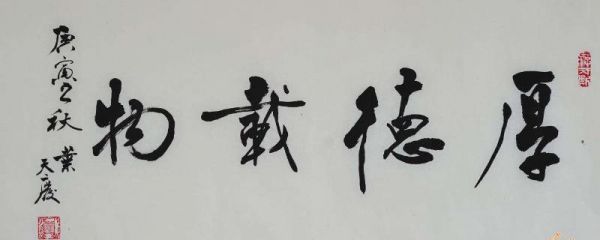 厚德載物
庚寅之秋
葉天慶